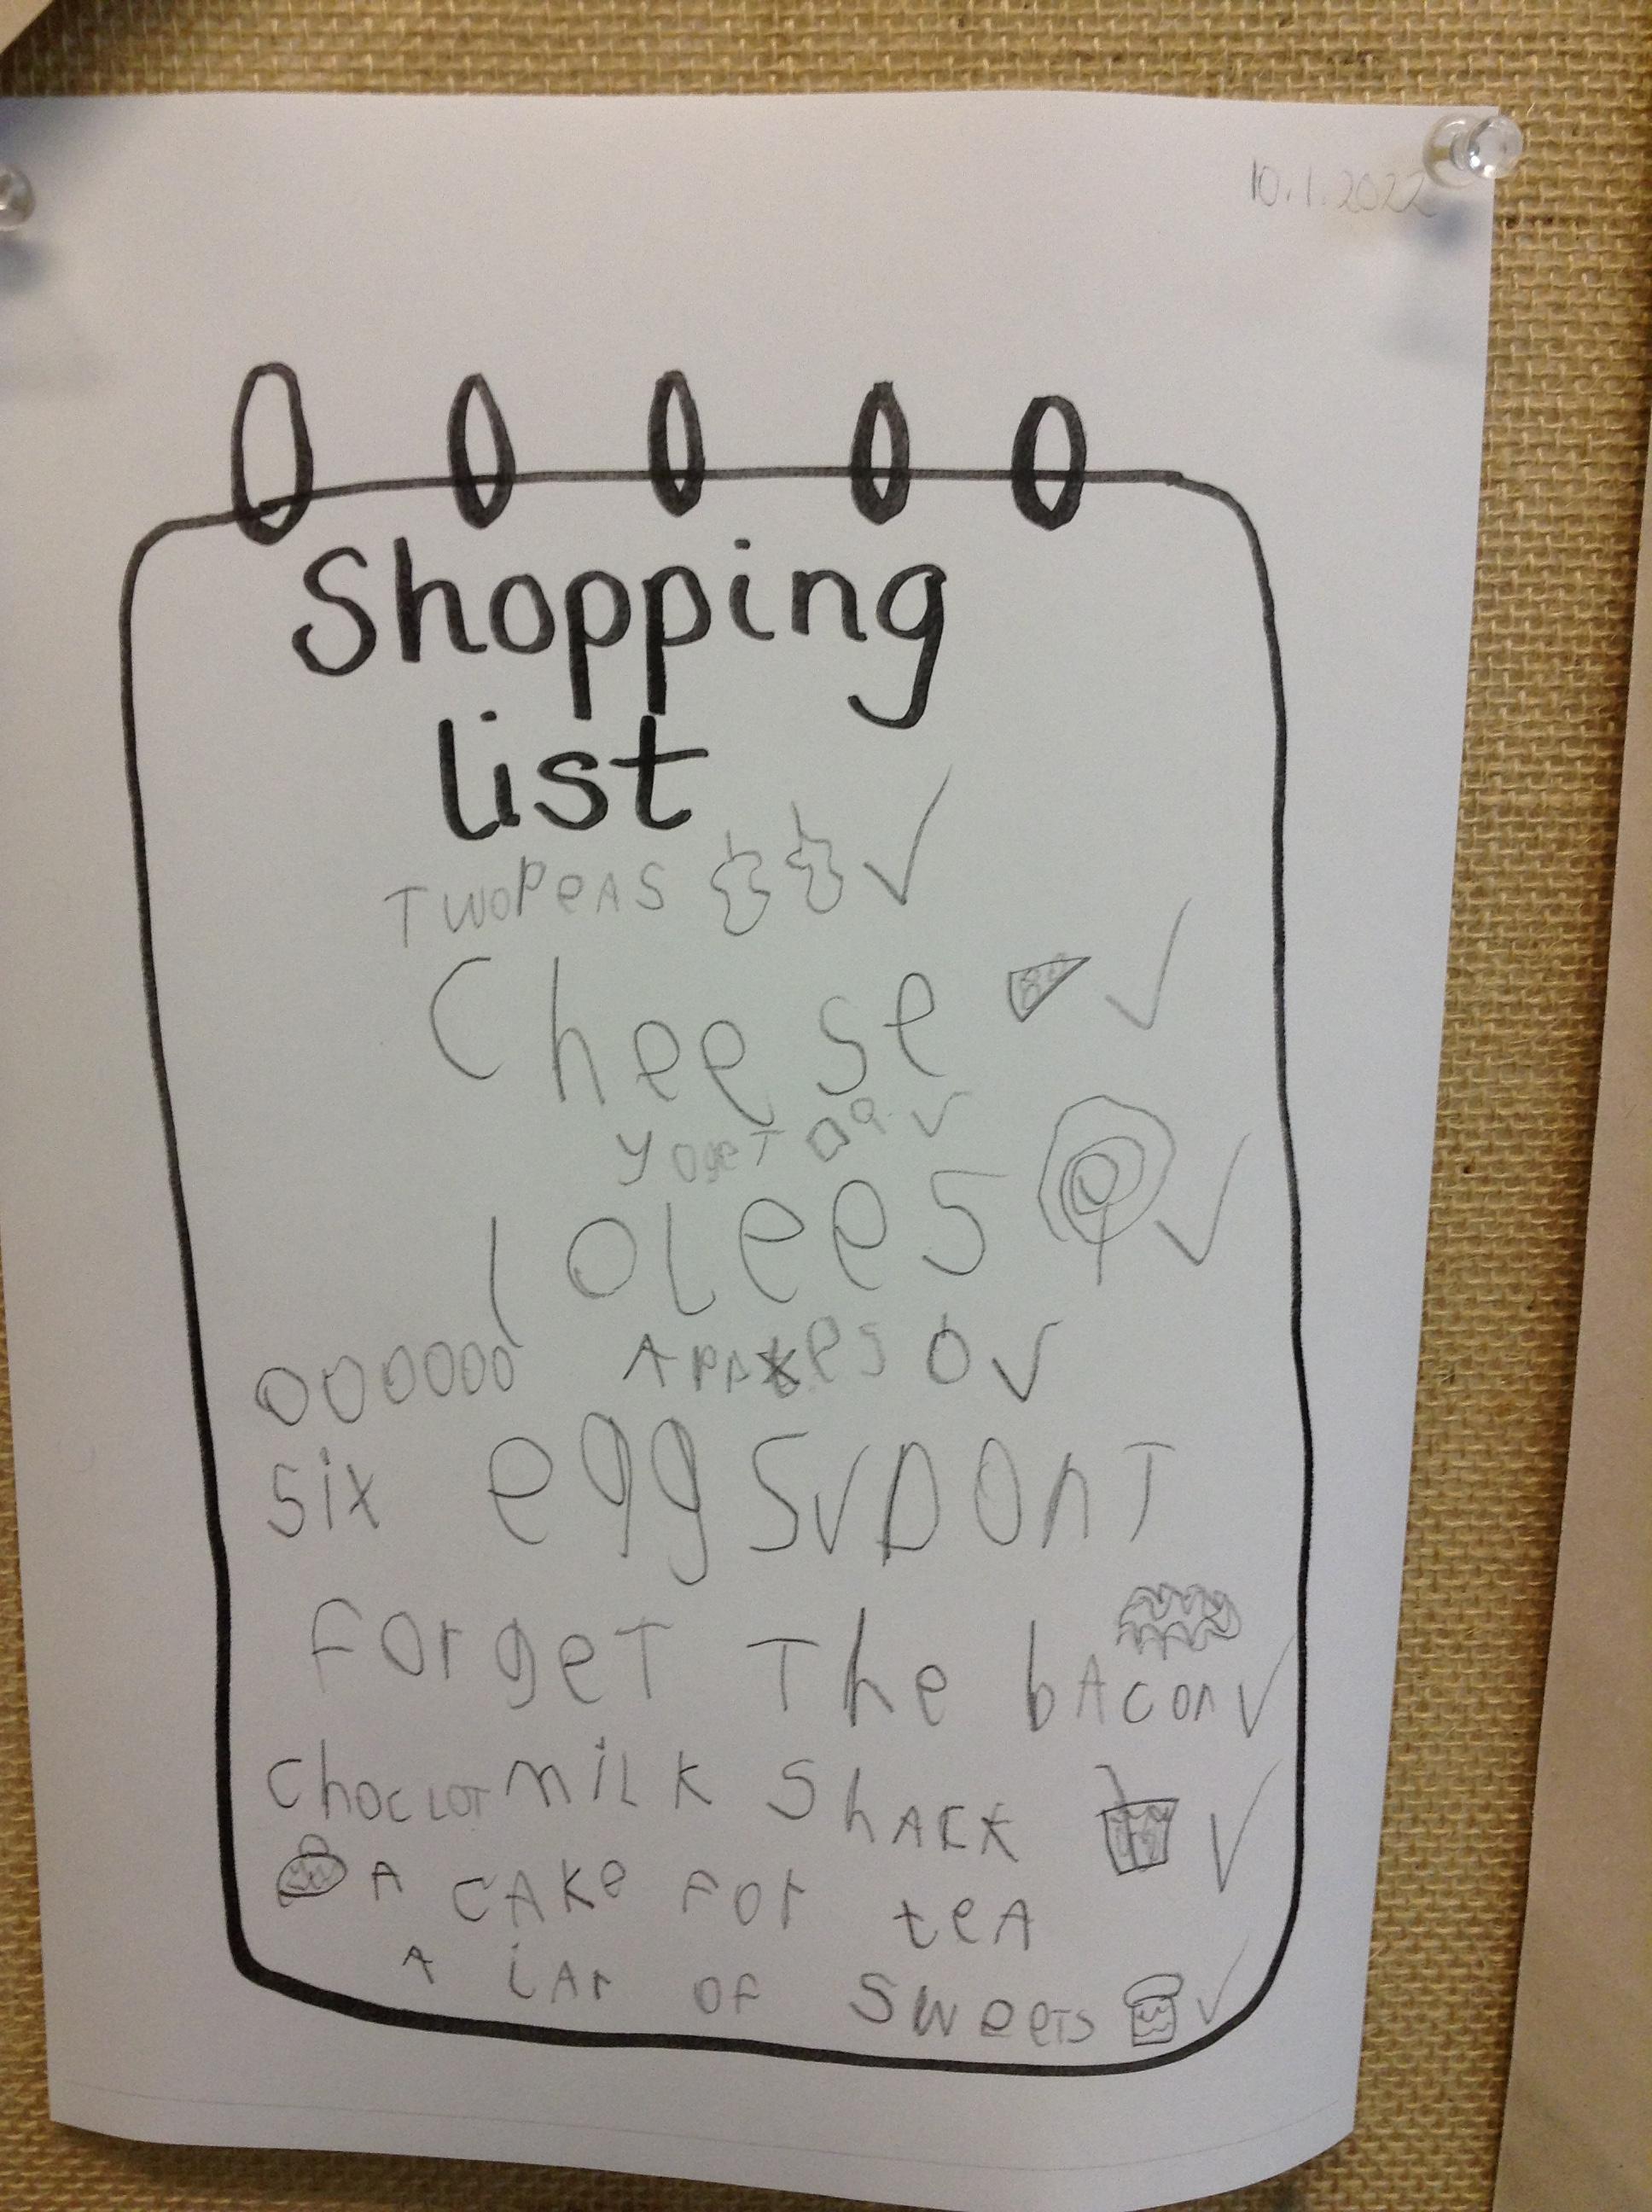 10.1.2022
Shopping
list
Two Peas
Cheese
yogeT
lolees
APPles
six eggs Dont
Forget The bAcon
Choclot milk ShAck
A cAke For teA
A iAr oF Sweets